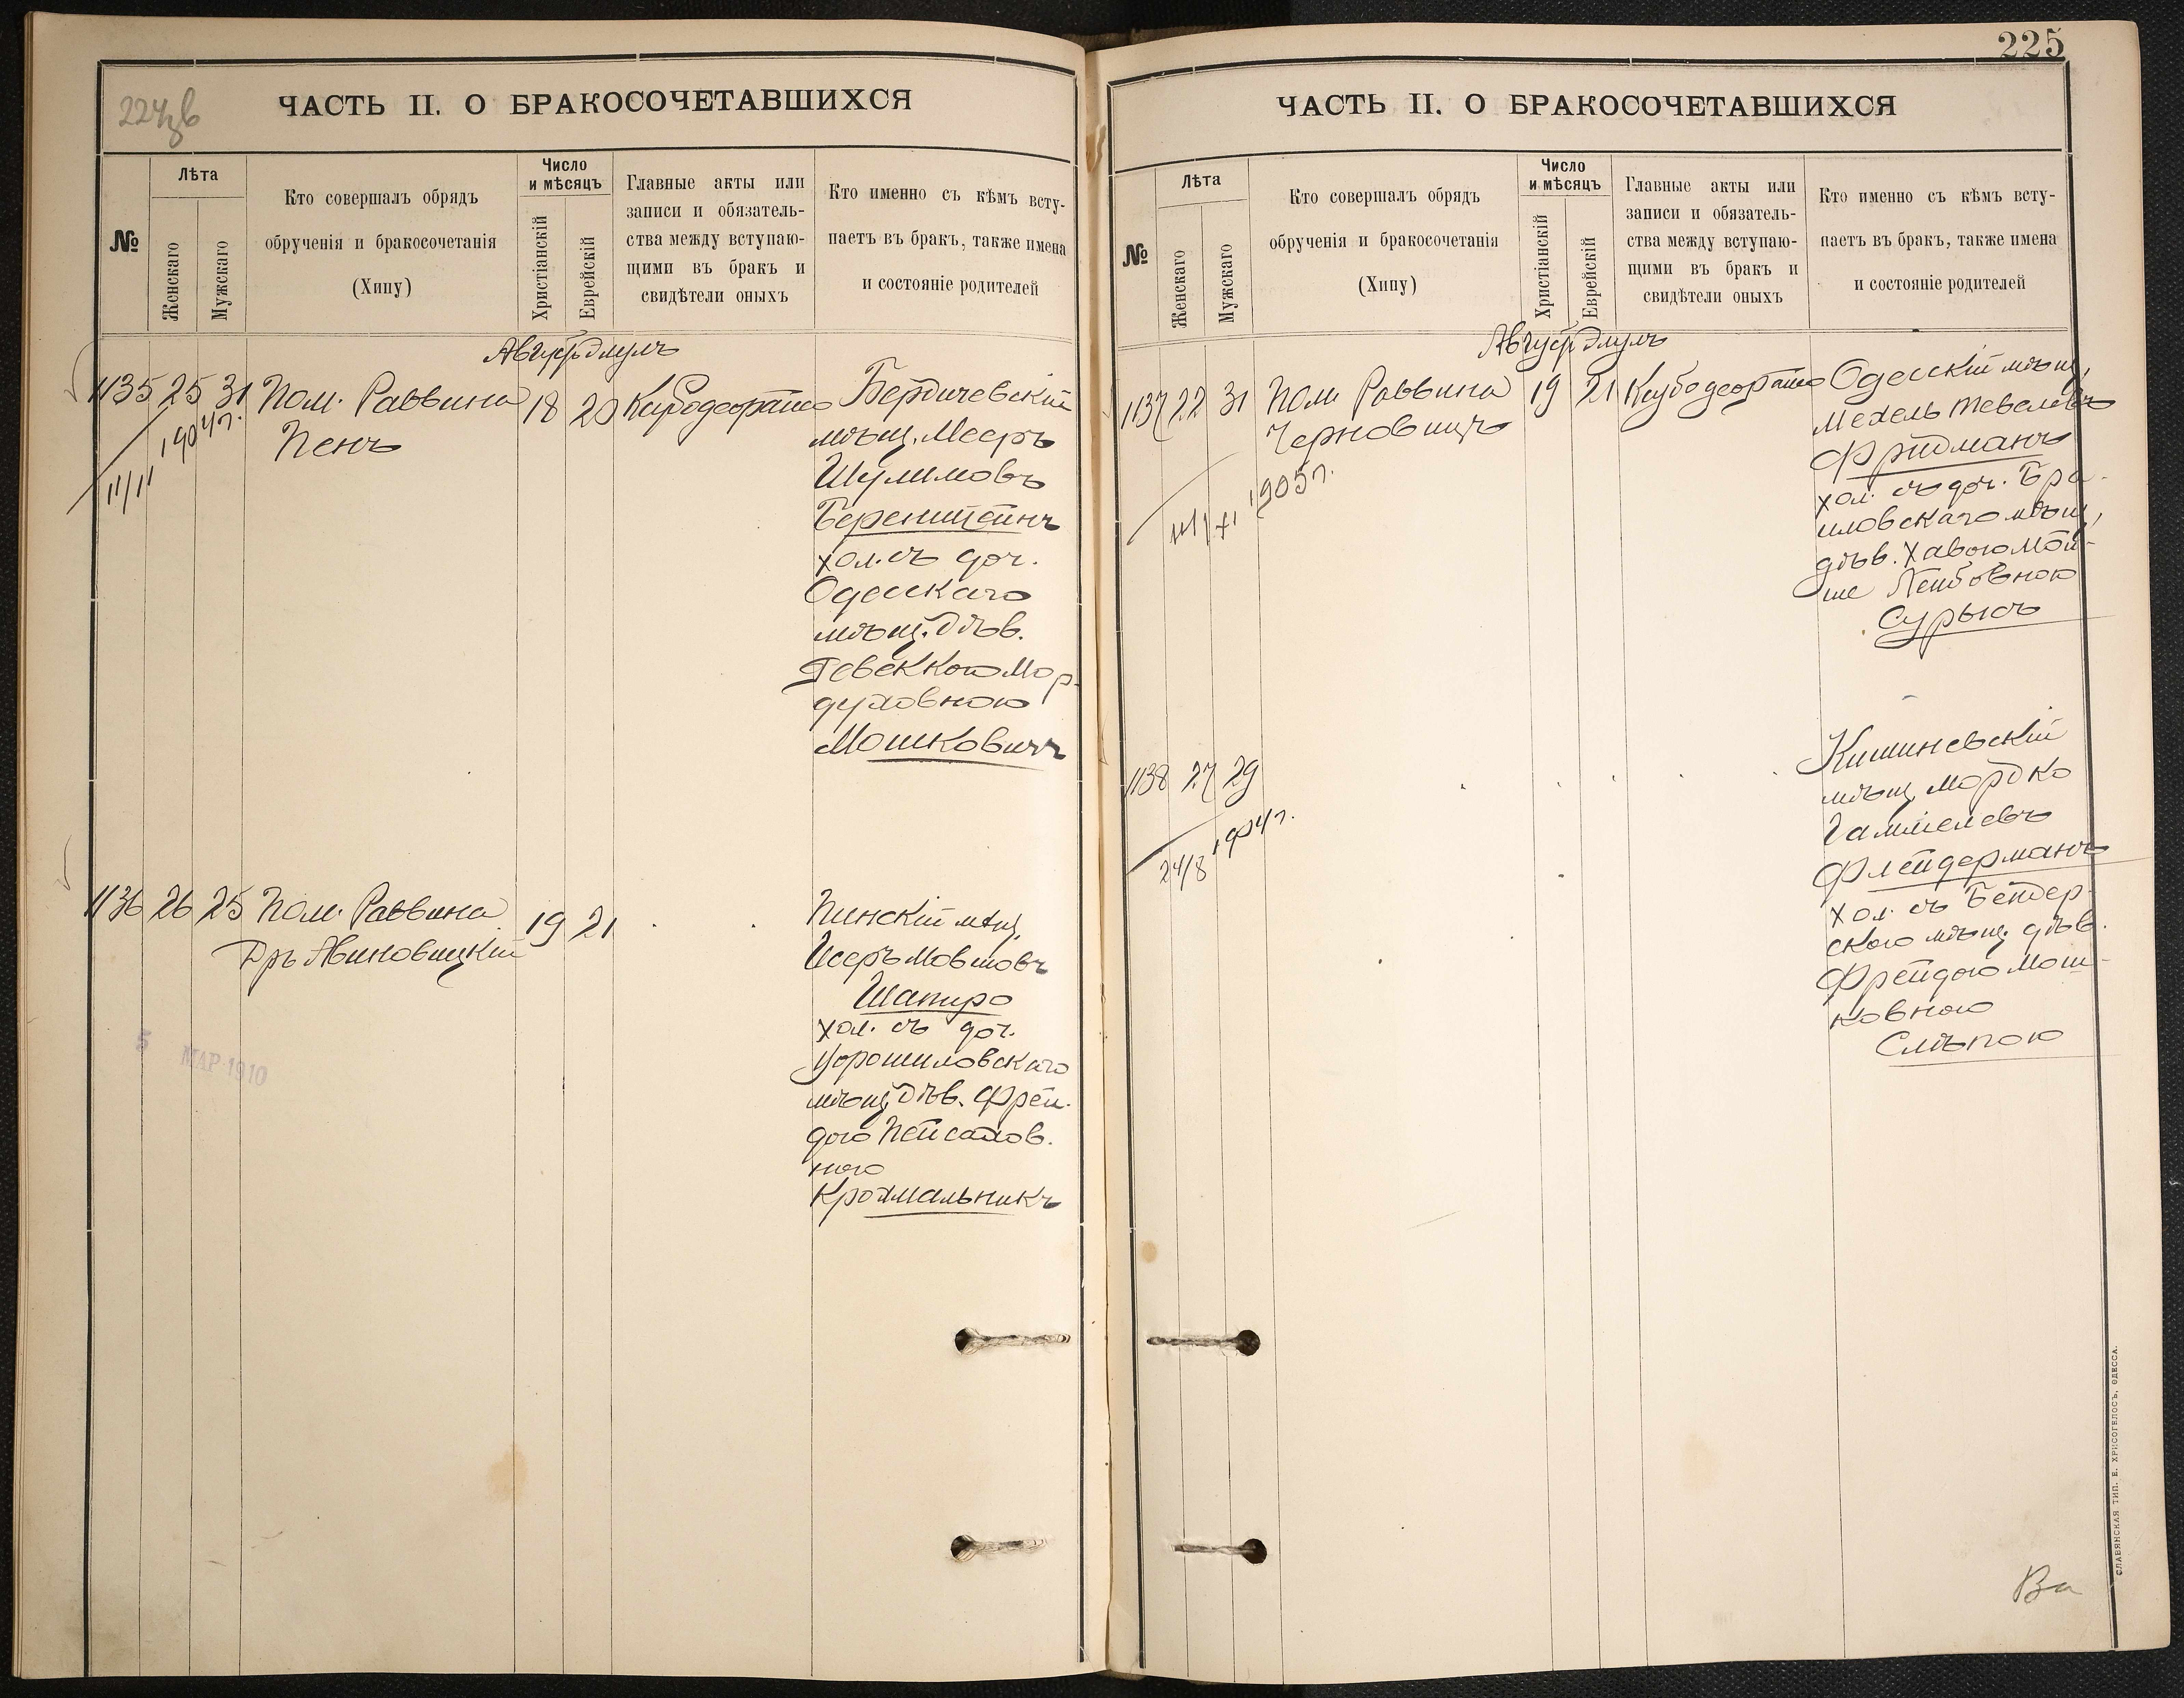 224об
ЧАСТЬ II. О БРАКОСОЧЕТАВШИХСЯ
№
Лѣта
Женскаго
Мужскаго
Кто совершалъ обрядъ
обрученія и бракосочетанія
(Хипу)
Число
и мѣсяцъ
Христіанскій
Еврейскій
Главные акты или
записи и обязатель-
ства между вступаю-
щими въ бракъ и
свидѣтели оныхъ
Кто именно съ кѣмъ всту-
паетъ въ бракъ, также имена
и состояніе родителей
1135 25 31 Пом. Раввина 18 20
Пенъ
11/11 1904 г.
Бердичевскій
мѣщ. Мееръ
Шулимовъ
Беренштейнъ
хол. съ доч.
Одесскаго
мѣщ. дѣв.
Ревеккою Мор-
духовною
Мошковичъ
1136 26 25 Пом. Раввина 19 21
Др. Авиновицкій
Пинскій мѣщ.
Исеръ Мовшовъ
Шапиро
хол. съ доч.
Ворошиловскаго
мѣщ. дѣв. Фрей-
дою Пейсахов-
ною
Крохмальникъ
5 МАР 1910
225
ЧАСТЬ II. О БРАКОСОЧЕТАВШИХСЯ
№
Лѣта
Женскаго
Мужскаго
Кто совершалъ обрядъ
обрученія и бракосочетанія
(Хипу)
Число
и мѣсяцъ
Христіанскій
Еврейскій
Главные акты или
записи и обязатель-
ства между вступаю-
щими въ бракъ и
свидѣтели оныхъ
Кто именно съ кѣмъ всту-
паетъ въ бракъ, также имена
и состояніе родителей
1137 22 31 Пом. Раввина 19 21
Черновицъ
1905 г.
Одесскій мѣщ.
Мехель Тевелевъ
Фридманъ
хол. съ доч. Бра-
иловскаго мѣщ.
дѣв. Хавою Мой-
ше Лейбовною
Сурысъ
1138 27 29
24/8 1904 г.
Кишиневскій
мѣщ. Мордко
Гамшеевъ
Флейдерманъ
хол. съ Бендер-
ского мѣщ. дѣв.
Фрейдою Мош-
ковною
Слѣпою
СЛАВЯНСКАЯ ТИП. Е. ХРИСОГЕЛОСЪ, ОДЕССА.